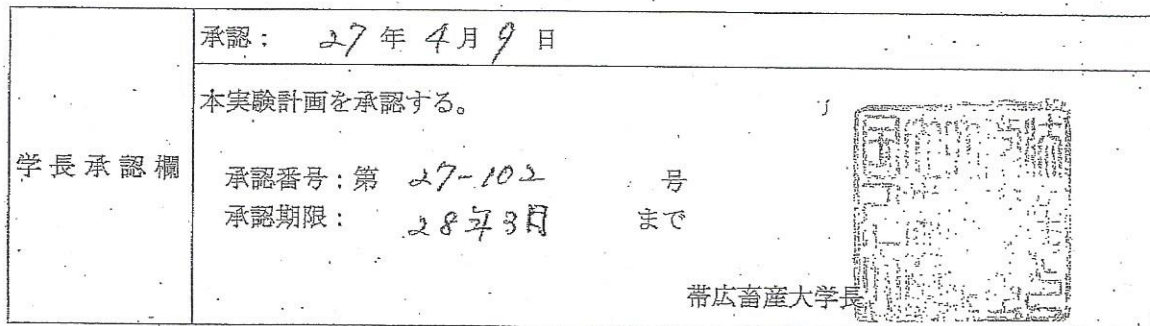 承認： 27年4月9日
本実験計画を承認する。
学長承認欄
承認番号：第 27-102 号
承認期限： 28年3月 まで
帯広畜産大学長